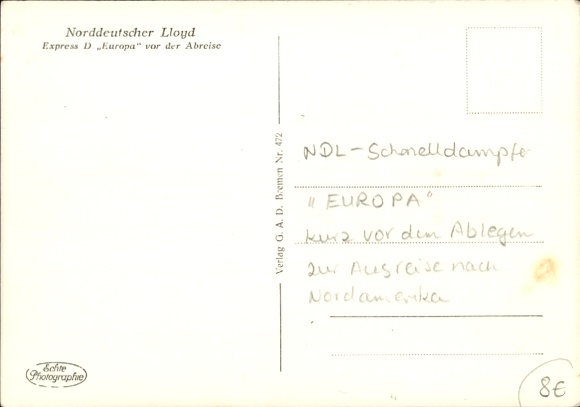 Norddeutscher Lloyd
Express D „Europa" vor der Abreise
Verlag G. A. D. Bremen Nr. 472
NDL - Schnelldampfer
"EUROPA"
kurz vor dem Ablegen
zur Ausreise nach
Nordamerika
Echte
Photographie
8€